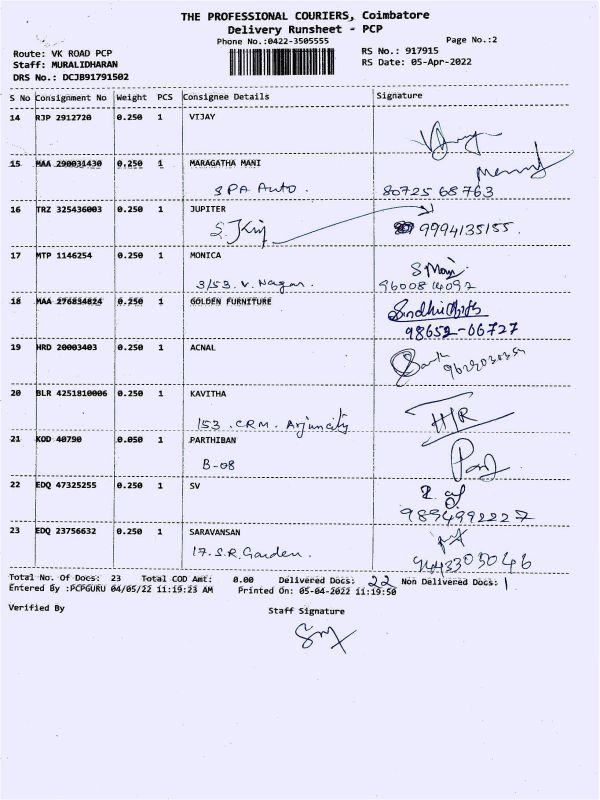 THE PROFESSIONAL COURIERS, Coimbatore
Delivery Runsheet - PCP
Phone No.:0422-3505555
Page No.:2
Route: VK ROAD PCP
RS No.: 917915
Staff: MURALIDHARAN
RS Date: 05-Apr-2022
DRS No.: DCJB91791502
S No Consignment No Weight PCS Consignee Details Signature
14 RJP 2912720 0.250 1 VIJAY
15 MAA 290031430 0.250 1 MARAGATHA MANI
SPA Auto. 80725 68763
16 TRZ 325436003 0.250 1 JUPITER
9994135155.
17 MTP 1146254 0.250 1 MONICA
S Mani
3/53. V. Nagar. 9600814097
18 MAA 276834824 0.250 1 GOLDEN FURNITURE
98652-06727
19 HRD 20003403 0.250 1 ACNAL
20 BLR 4251810006 0.250 1 KAVITHA
153 .C.R.M. Arjuncity
21 KOD 40790 0.050 1 PARTHIBAN
B-08
22 EDQ 47325255 0.250 1 SV
9894992227
23 EDQ 23756632 0.250 1 SARAVANSAN
17. S.R. Garden. 9443303046
Total No. Of Docs: 23 Total COD Amt: 0.00 Delivered Docs: 22 Non Delivered Docs: 1
Entered By :PCPGURU 04/05/22 11:19:23 AM Printed On: 05-04-2022 11:19:50
Verified By
Staff Signature